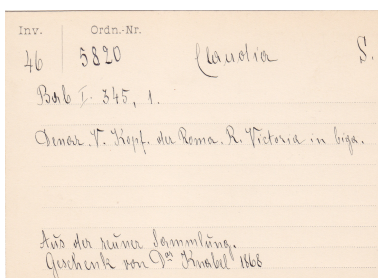 Inv. Ordn.-Nr.
46 5820 Claudia S.
Bab I. 345, 1.
Denar. V. Kopf. der Roma. R. Victoria in biga.
Aus der Sammlung.
Geschenk von Dr Knabel 1868